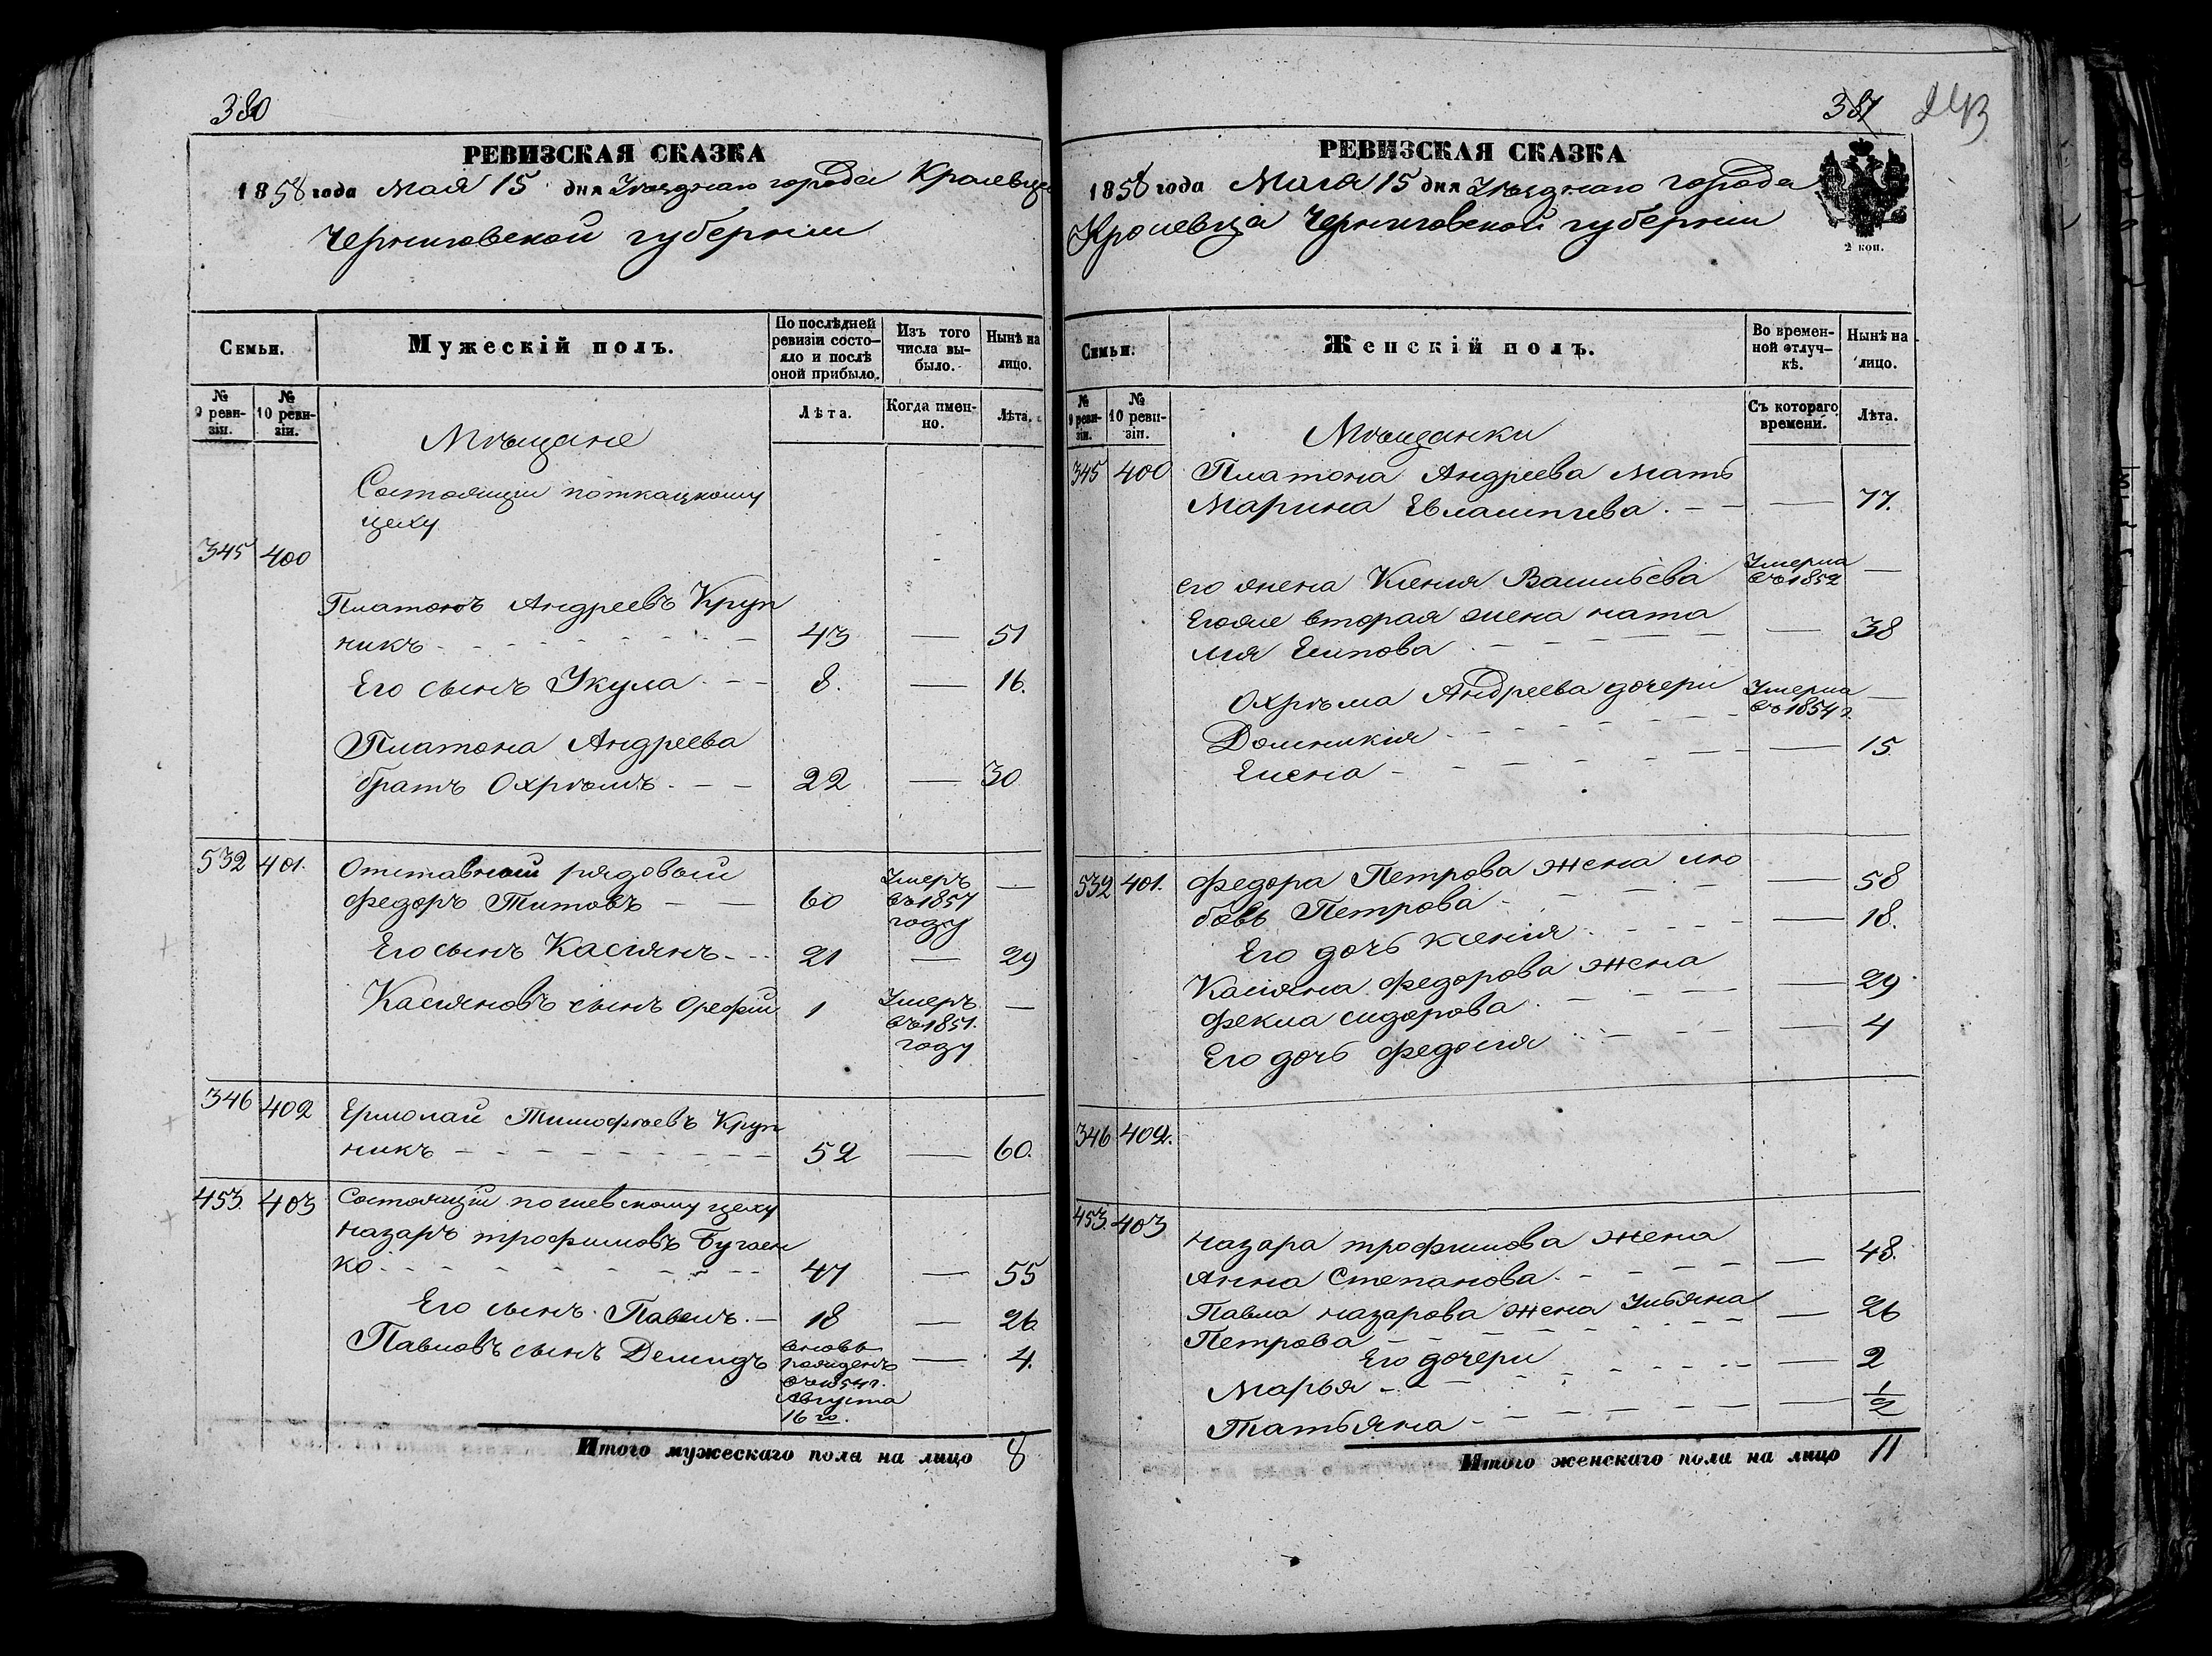 380
РЕВИЗСКАЯ СКАЗКА
1858 года Мая 15 дня Уѣзднаго города Кролевца
Черниговской губерніи
Семьи.
Мужескій полъ.
По послѣдней ревизіи состояло и послѣ оной прибыло.
Изъ того числа выбыло.
Нынѣ на лицо.
№ 9 ревизіи.
№ 10 ревизіи.
Лѣта.
Когда именно.
Лѣта.
Мѣщане
Состоящіи поткацкому
цеху
345 400
Платонъ Андреевъ Круп
никъ 43 — 51
Его сынъ Укула 8. — 16.
Платона Андреева
братъ Охрѣмъ 22 — 30
532 401. Отставной рядовый
федоръ Титовъ 60 Умеръ въ 1857 году —
Его сынъ Касіянъ 21 — 29
Касіяновъ сынъ Орефій 1 Умеръ въ 1851. году —
346 402 Ермолай Тимофѣевъ Круп
никъ 52 — 60.
453. 403 Состоящіи пошевскому цеху
назаръ трофимовъ Бугаен
ко 47 — 55
Его сынъ Павелъ 18 — 26
Павловъ сынъ Демидъ вновь рожденъ въ 1854 г. Августа 16 го. — 4.
Итого мужескаго пола на лицо 8
387
243
РЕВИЗСКАЯ СКАЗКА
1858 года Мая 15 дня Уѣзднаго города
Кролевца Черниговской губерніи
2 коп.
Семьи.
Женскій полъ.
Во временной отлучкѣ.
Нынѣ на лицо.
№ 9 ревизіи.
№ 10 ревизіи.
Съ котораго времени.
Лѣта.
Мѣщанки
345 400 Платона Андреева мать
Марина Евлампіева. — 77.
его жена Ксенія Васильева Умерла въ 1852 —
Егоже вторая жена ната
лія Есипова — 38
Охрѣма Андреева дочери Умерла въ 1854 г. —
Домникія
Елена — 15.
532 401. федора Петрова жена лю
бовь Петрова — 58
Его дочь ксенія — 18.
Касіяна федорова жена
фекла сидорова — 29
Его дочь федосія — 4
346 402.
453. 403 назара трофимова жена
Анна Степанова — 48.
Павла назарова жена Ульяна — 26
Петрова
Его дочери
Марья — 2
Татьяна — 1/2
Итого женскаго пола на лицо 11